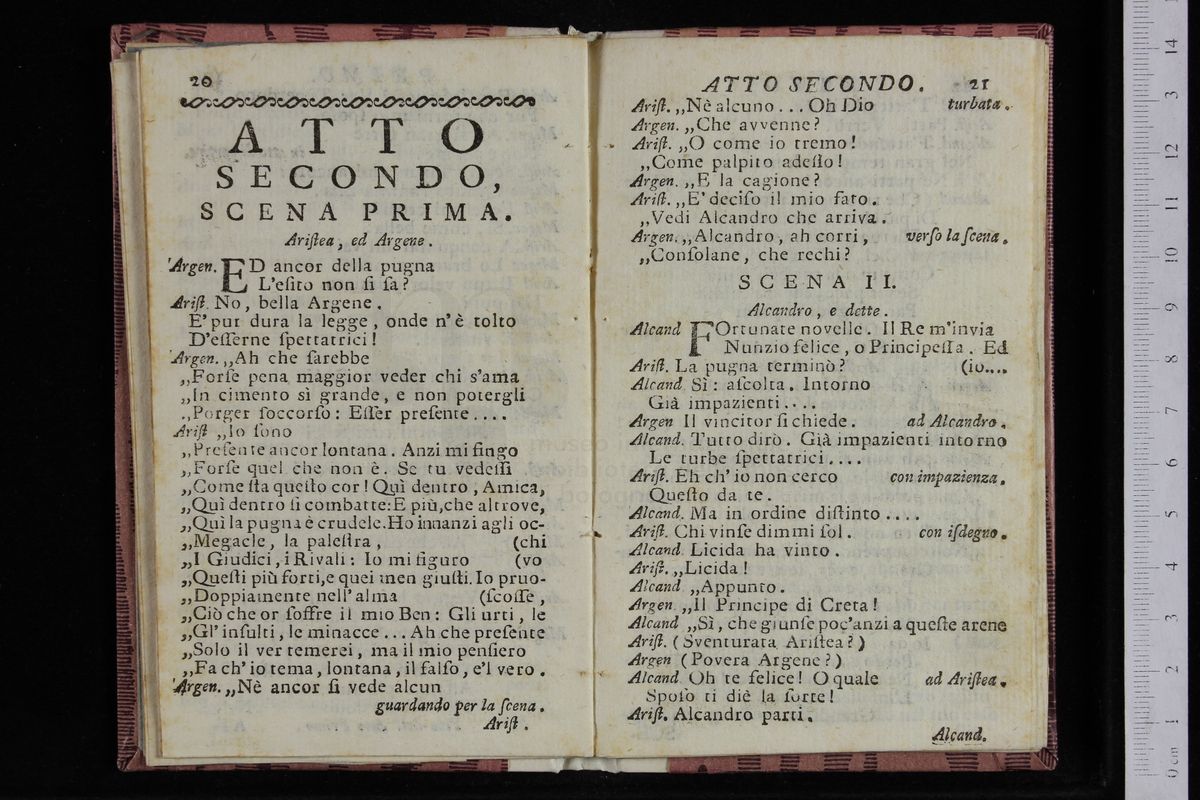 20
ATTO
SECONDO,
SCENA PRIMA.
Ariſtea, ed Argene.
Argen. ED ancor della pugna
L'eſito non ſi ſa?
Ariſt. No, bella Argene.
E' pur dura la legge, onde n'è tolto
D'eſſerne ſpettatrici!
Argen. „Ah che ſarebbe
„Forſe pena maggior veder chi s'ama
„In cimento sì grande, e non potergli
„Porger ſoccorſo: Eſſer preſente....
Ariſt „Io ſono
„Preſente ancor lontana. Anzi mi fingo
„Forſe quel che non è. Se tu vedeſſi
„Come ſta queſto cor! Quì dentro, Amica,
„Quì dentro ſi combatte: E più, che altrove,
„Quì la pugna è crudele. Ho innanzi agli oc-
„Megacle, la paleſtra, (chi
„I Giudici, i Rivali: Io mi figuro (vo
„Queſti più forti, e quei men giuſti. Io pruo-
„Doppiamente nell'alma (ſcoſſe,
„Ciò che or ſoffre il mio Ben: Gli urti, le
„Gl'inſulti, le minacce... Ah che preſente
„Solo il ver temerei, ma il mio penſiero
„Fa ch'io tema, lontana, il falſo, e'l vero.
Argen. „Nè ancor ſi vede alcun
guardando per la ſcena.
Ariſt.
ATTO SECONDO. 21
Ariſt. „Nè alcuno... Oh Dio turbata.
Argen. „Che avvenne?
Ariſt. „O come io tremo!
„Come palpito adeſſo!
Argen. „E la cagione?
Ariſt. „E' deciſo il mio fato.
„Vedi Alcandro che arriva.
Argen. „Alcandro, ah corri, verſo la ſcena.
„Conſolane, che rechi?
SCENA II.
Alcandro, e dette.
Alcand FOrtunate novelle. Il Re m'invia
Nunzio felice, o Principeſſa. Ed
Ariſt. La pugna terminò? (io....
Alcand. Sì: aſcolta. Intorno
Già impazienti....
Argen Il vincitor ſi chiede. ad Alcandro.
Alcand. Tutto dirò. Già impazienti intorno
Le turbe ſpettatrici....
Ariſt. Eh ch'io non cerco con impazienza.
Queſto da te.
Alcand. Ma in ordine diſtinto....
Ariſt. Chi vinſe dimmi ſol. con iſdegno.
Alcand. Licida ha vinto.
Ariſt. „Licida!
Alcand „Appunto.
Argen. „Il Principe di Creta!
Alcand „Sì, che giunſe poc'anzi a queſte arene
Ariſt. (Sventurata Ariſtea?)
Argen (Povera Argene?)
Alcand. Oh te felice! O quale ad Ariſtea.
Spoſo ti diè la ſorte!
Ariſt. Alcandro parti.
Alcand.
14
13
12
11
10
9
8
7
6
5
4
3
2
1
0 cm